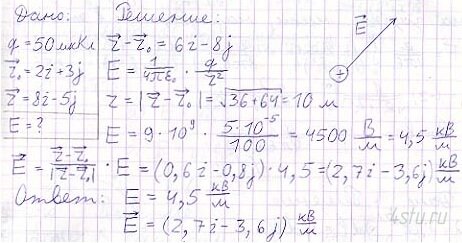 Дано: Решение:
q = 50 мкКл
r⃗₀ = 2i + 3j
r⃗ = 8i - 5j
E = ?
r⃗ - r⃗₀ = 6i - 8j
E = 1/(4πε₀) · q/r²
r = |r⃗ - r⃗₀| = √(36+64) = 10 м
E = 9 · 10⁹ · (5·10⁻⁵)/100 = 4500 В/м = 4,5 кВ/м
E⃗ = (r⃗ - r⃗₀)/|r⃗ - r⃗₀| · E = (0,6i - 0,8j) · 4,5 = (2,7i - 3,6j) кВ/м
Ответ: E = 4,5 кВ/м
E⃗ = (2,7i - 3,6j) кВ/м
E⃗
+
4sfu.ru